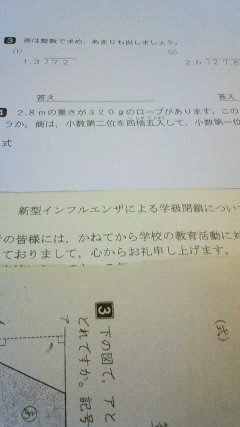 3 商は整数で求め、あまりも出しましょう。
(1)
1.3)7.2
2.6)2
答え
答え
4 2.8mの重さが320gのロープがあります。この
うか。商は、小数第二位を四捨五入して、小数第一位
式
新型インフルエンザによる学級閉鎖につい
の皆様には、かねてから学校の教育活動に対
ておりまして、心からお礼申し上げます。
3 下の図で、アと
どれですか。記号
(式)
ア
あ